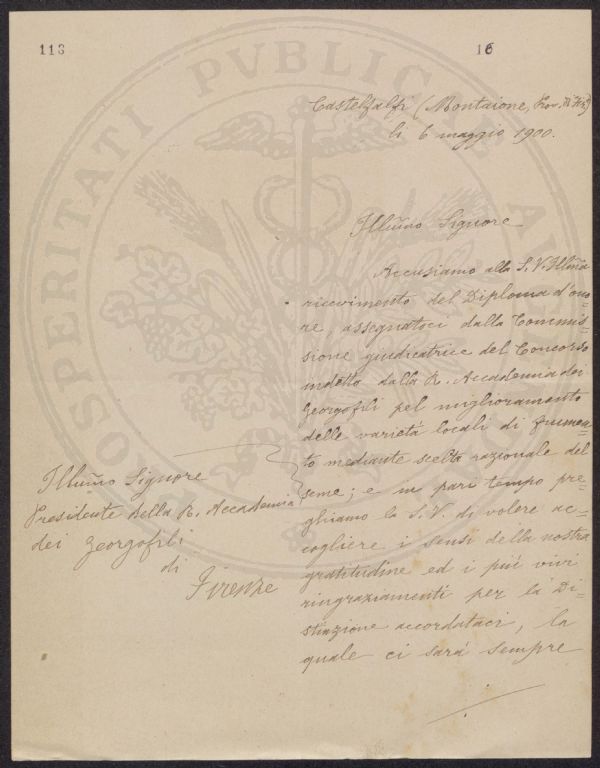 113
16
PROSPERITATI PVBLICAE AV
Castelfalfi (Montaione, Prov. di Fir.)
li 6 maggio 1900.
Illmo Signore
Accusiamo alla S. V. Illma
ricevimento del Diploma d'ono=
re, assegnatoci dalla Commis=
sione giudicatrice del Concorso
indetto dalla R. Accademia dei
Georgofili pel miglioramento
delle varietà locali di frumen=
to mediante scelta razionale del
seme; e in pari tempo pre=
ghiamo la S. V. di volere ac=
cogliere i sensi della nostra
gratitudine ed i più vivi
ringraziamenti per la Di=
stinzione accordataci, la
quale ci sarà sempre
Illmo Signore
Presidente della R. Accademia
dei Georgofili
di
Firenze